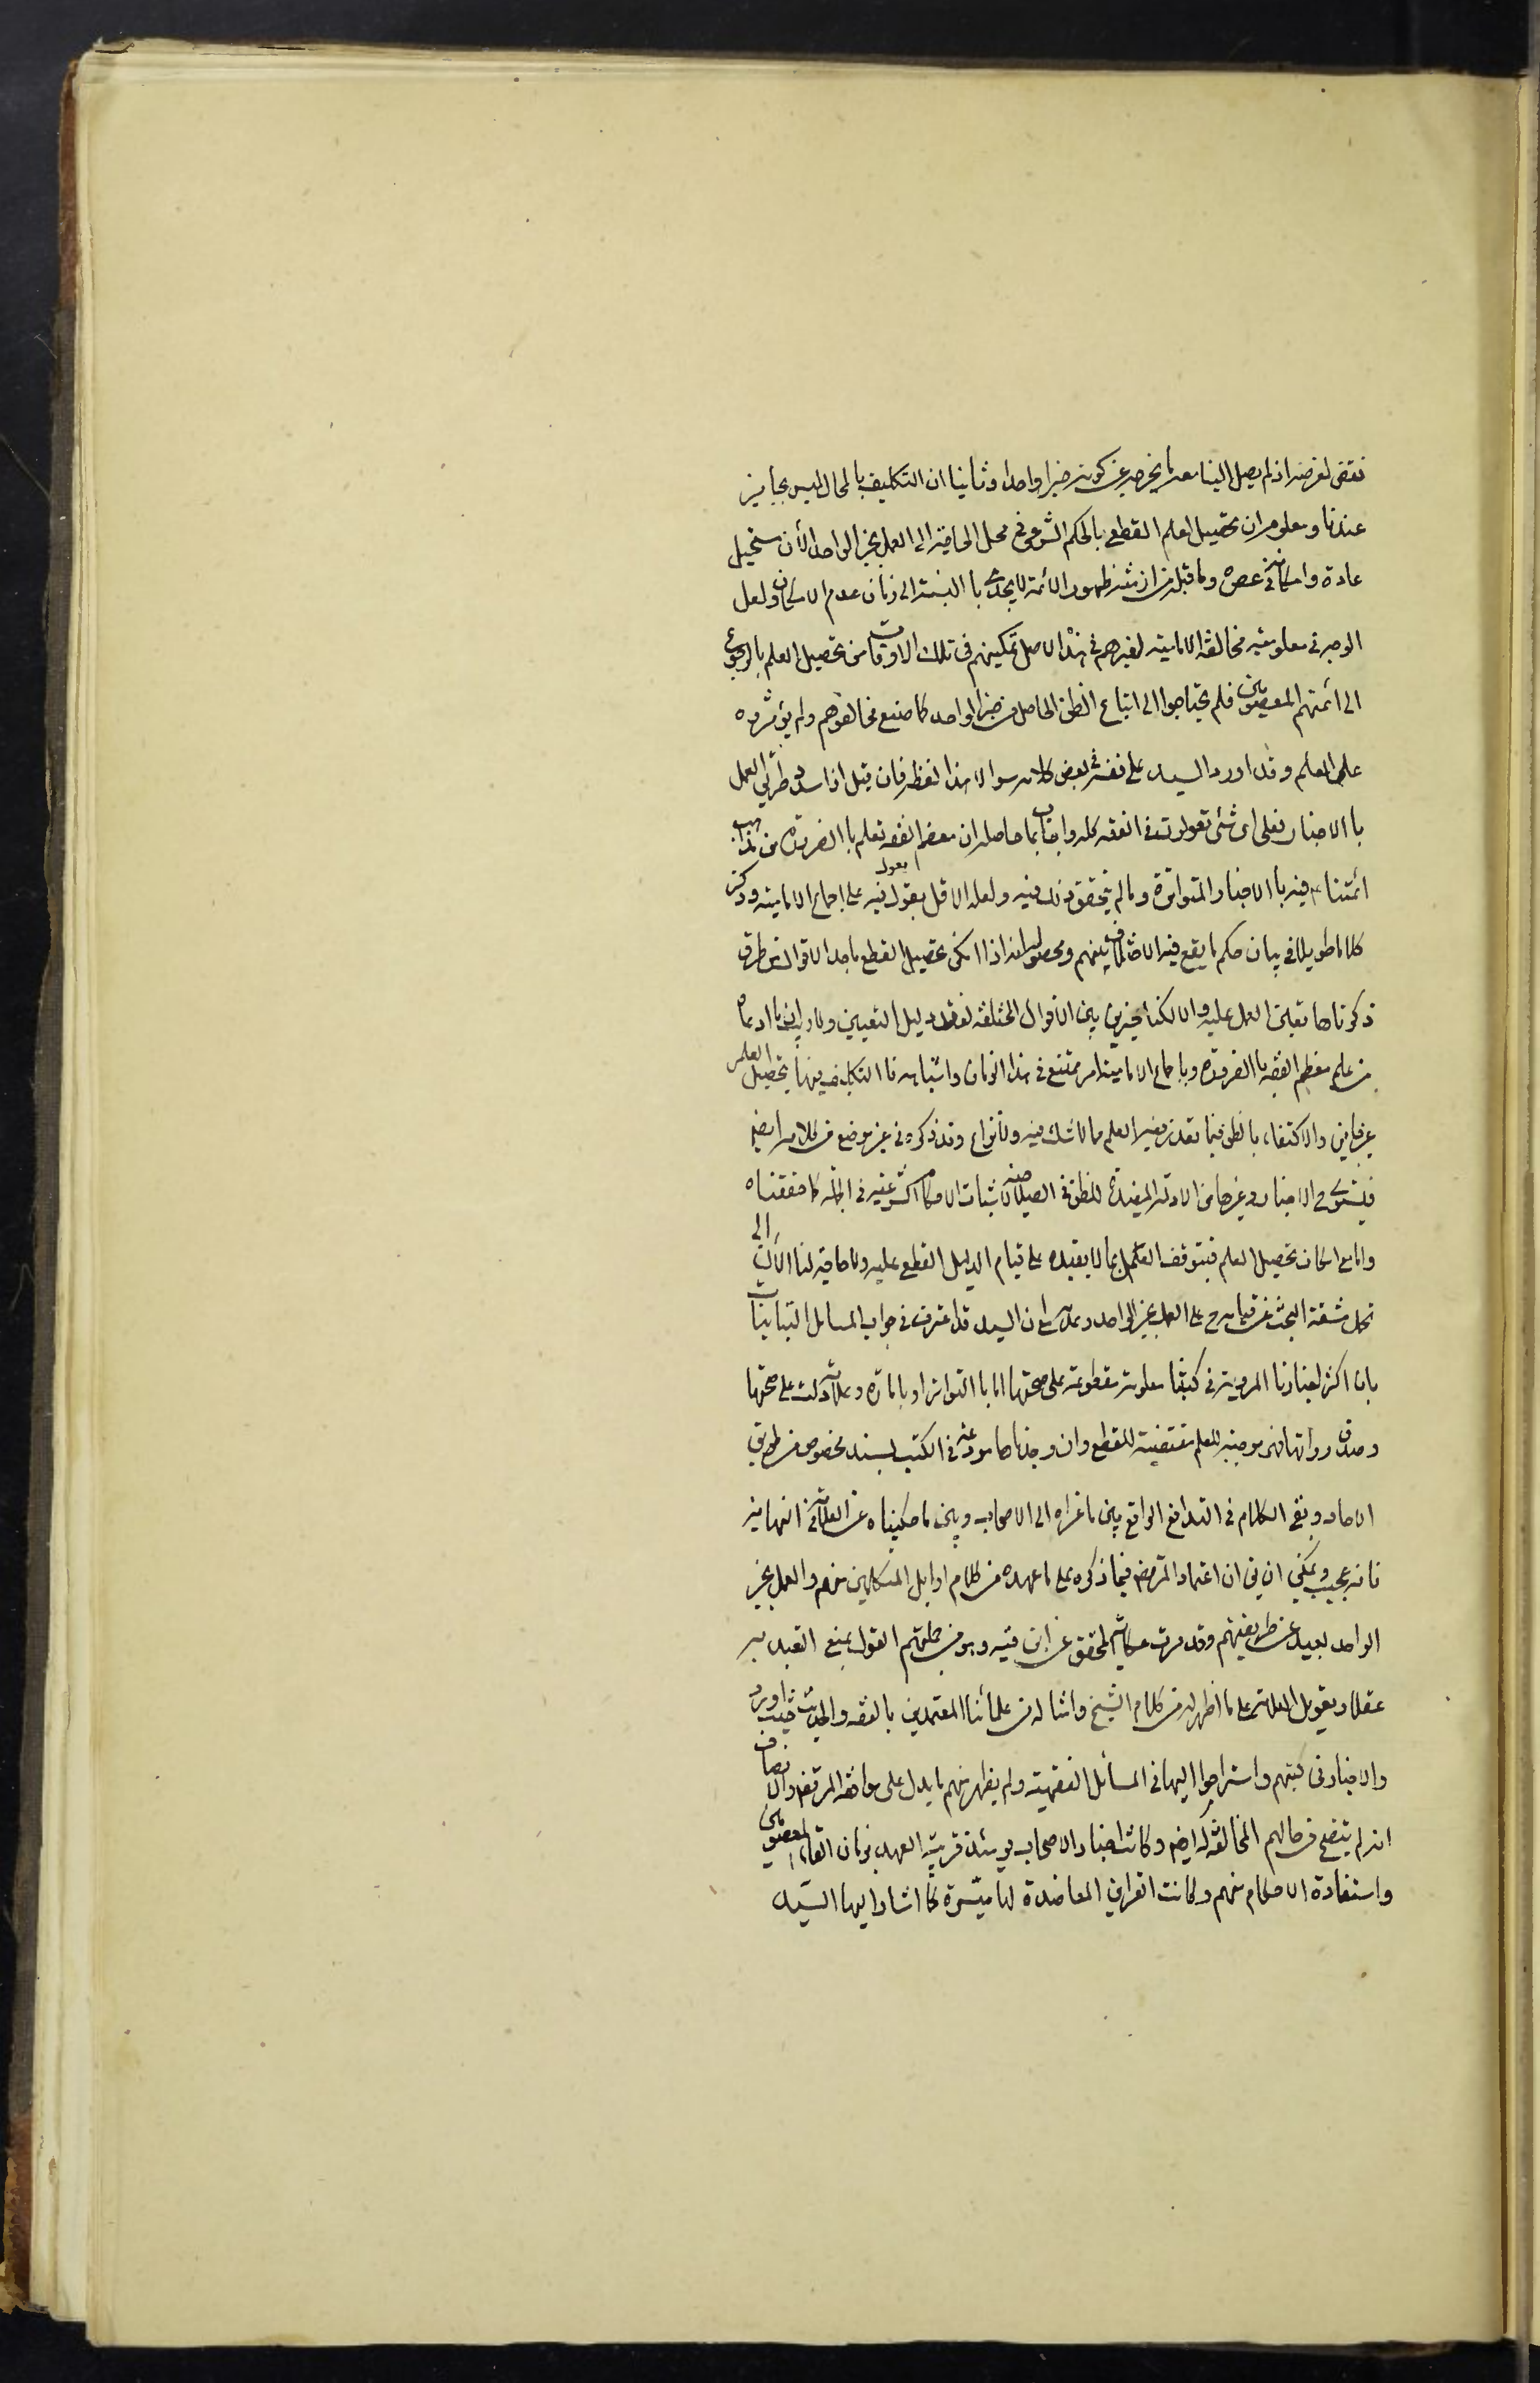 نقض لغرضه اذ لم يصل الينا معه ما يخرجه عن كونه خبرا واحدا وثانيا ان التكليف بالمحال ليس بجايز
عندنا ومعلوم ان تحصيل العلم القطعي بالحكم الشرعي في محل الحاجة الى العمل بخبر الواحد الآن مستحيل
عادة وامكانه في عصره وما قبله من ازمنة ظهور الائمة لا يجدي با النسبة الى زمان عدم الامكان ولعل
الوجه في معلومية مخالفة الامامية لغيرهم في هذا الاصل تمكينهم في تلك الاوقات من تحصيل العلم بالرجوع
الى ائمتهم المعصومين فلم يحتاجوا الى اتباع الظن الحاصل من خبر الواحد كما صنع مخالفوهم ولم يؤثروه
على العلم وقد اورد السيد على نفسه في بعض كلامه سوالا هذا لفظه فان قيل اذا سددتم طريق العمل
با الاخبار فعلى اى شئ تعولون في الفقه كله واجاب بما حاصله ان معظم الفقه تعلم با الضرورة من مذاهب
ائمتنا ع فيه با الاخبار المتواترة وما لم يتحقق ذلك فيه ولعله الاقل يعول فيه على اجماع الامامية وذكر
كلاما طويلا في بيان حكم ما يقع فيه الاختلاف بينهم ومحصوله انه اذا امكن تحصيل القطع باحد الاقوال من طرق
ذكرناها تعين العمل عليه والا لكنا مخيرين بين الاقوال المختلفة لفقد دليل التعيين ولا ريب ان ما ادعاه
من علم معظم الفقه با الضرورة وبا جماع الامامية امر ممتنع في هذا الزمان واشباهه فا التكليف فيها بتحصيل العلم
غير جايز والاكتفاء بالظن فيما يتعذر فيه العلم مما لا شك فيه ولا نزاع وقد ذكره في غير موضع من كلامه ايضا
فيستوى ح الاخبار وغيرها من الادلة المفيدة للظن في الصلاحية لاثبات الاحكام الشرعية في الجملة كما حققناه
واما مع امكان تحصيل العلم فيتوقف العمل بما لا يفيده على قيام الدليل القطع عليه ولا حاجة لنا الآن الى
تحمل مشقة البحث عن قيامه ح على العمل بخبر الواحد وعدمه على ان السيد قد اعترف في جواب المسائل التباينات
بان اكثر اخبارنا المروية في كتبنا معلومة مقطوعة على صحتها اما با التواتر او بامارة وعلامة دلت على صحتها
وصدق رواتها فهى موجبة للعلم مقتضية للقطع وان وجدناها مودعة في الكتب بسند مخصوص من طريق
الاحاد وبقى الكلام في التدافع الواقع بين ما عزاه الى الاصحاب وبين ما حكيناه عن العلامة في النهاية
فانه عجيب ويمكن ان يق ان اعتماد المرتضى فيما ذكره على ما عهده من كلام اوايل المتكلمين منهم والعمل بخبر
الواحد بعيد عن طريقتهم وقد مرت حكاية المحقق عن ابن قبه وهو من جملتهم القول بمنع التعبد به
عقلا وتعويل العلامة على ما ظهر له من كلام الشيخ وامثاله من علمائنا المعتمدين بالفقه والحديث حيث اوردو
والاخبار في كتبهم واستراحوا اليها في المسائل الفقهية ولم يظهر منهم ما يدل على موافقة المرتضى والانصاف
انه لم يتضح من حالهم المخالفة له ايضا وكانت اخبار الاصحاب يومئذ قريبة العهد بزمان لقاء المعصومين
واستفادة الاحكام منهم وكانت القراين المعاضدة لها ميسرة كما اشار اليها السيد